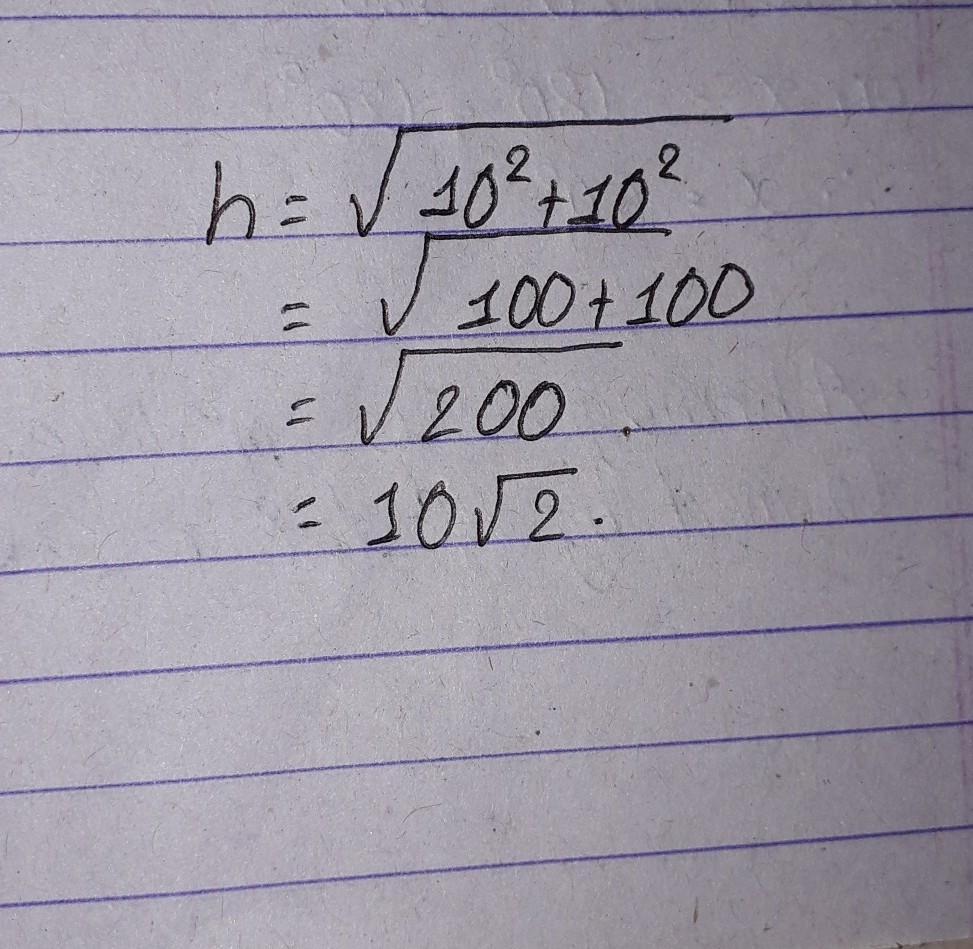 h = √10² + 10²
= √100 + 100
= √200
= 10√2.